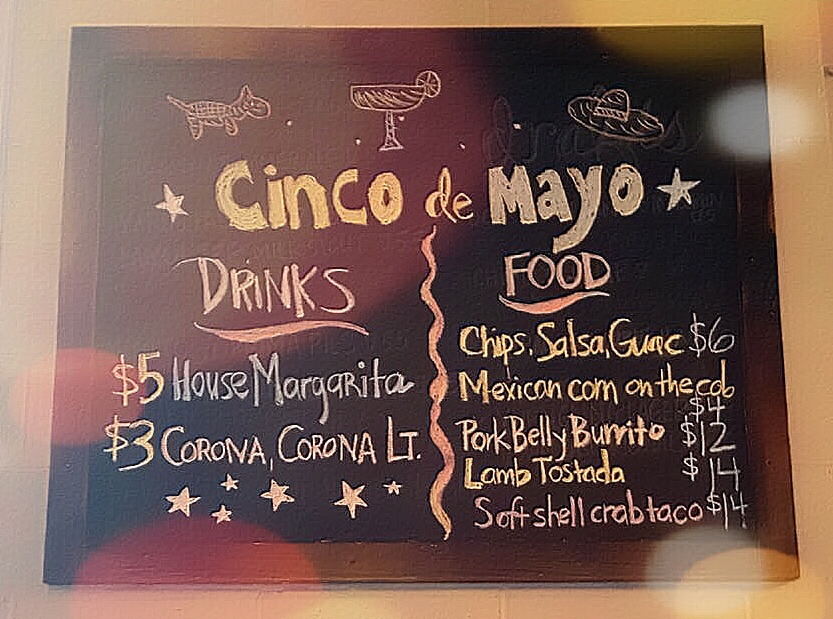 Cinco de Mayo
DRINKS
$5 House Margarita
$3 CORONA, CORONA LT.
FOOD
Chips, Salsa, Guac $6
Mexican corn on the cob
$4
Pork Belly Burrito $12
Lamb Tostada $14
Soft shell crab taco $14